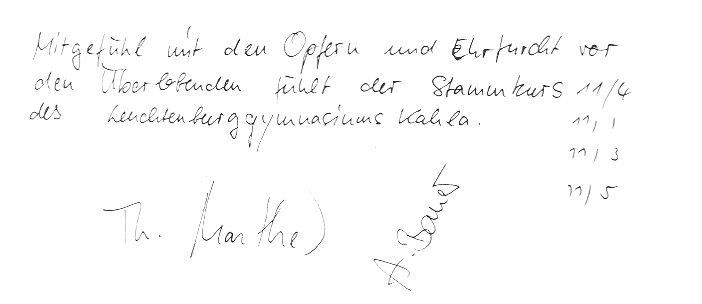 Mitgefühl mit den Opfern und Ehrfurcht vor
den Überlebenden fühlt der Stammkurs 11/4
des Leuchtenburggymnasiums Kahla. 11/1
11/3
11/5
Th.